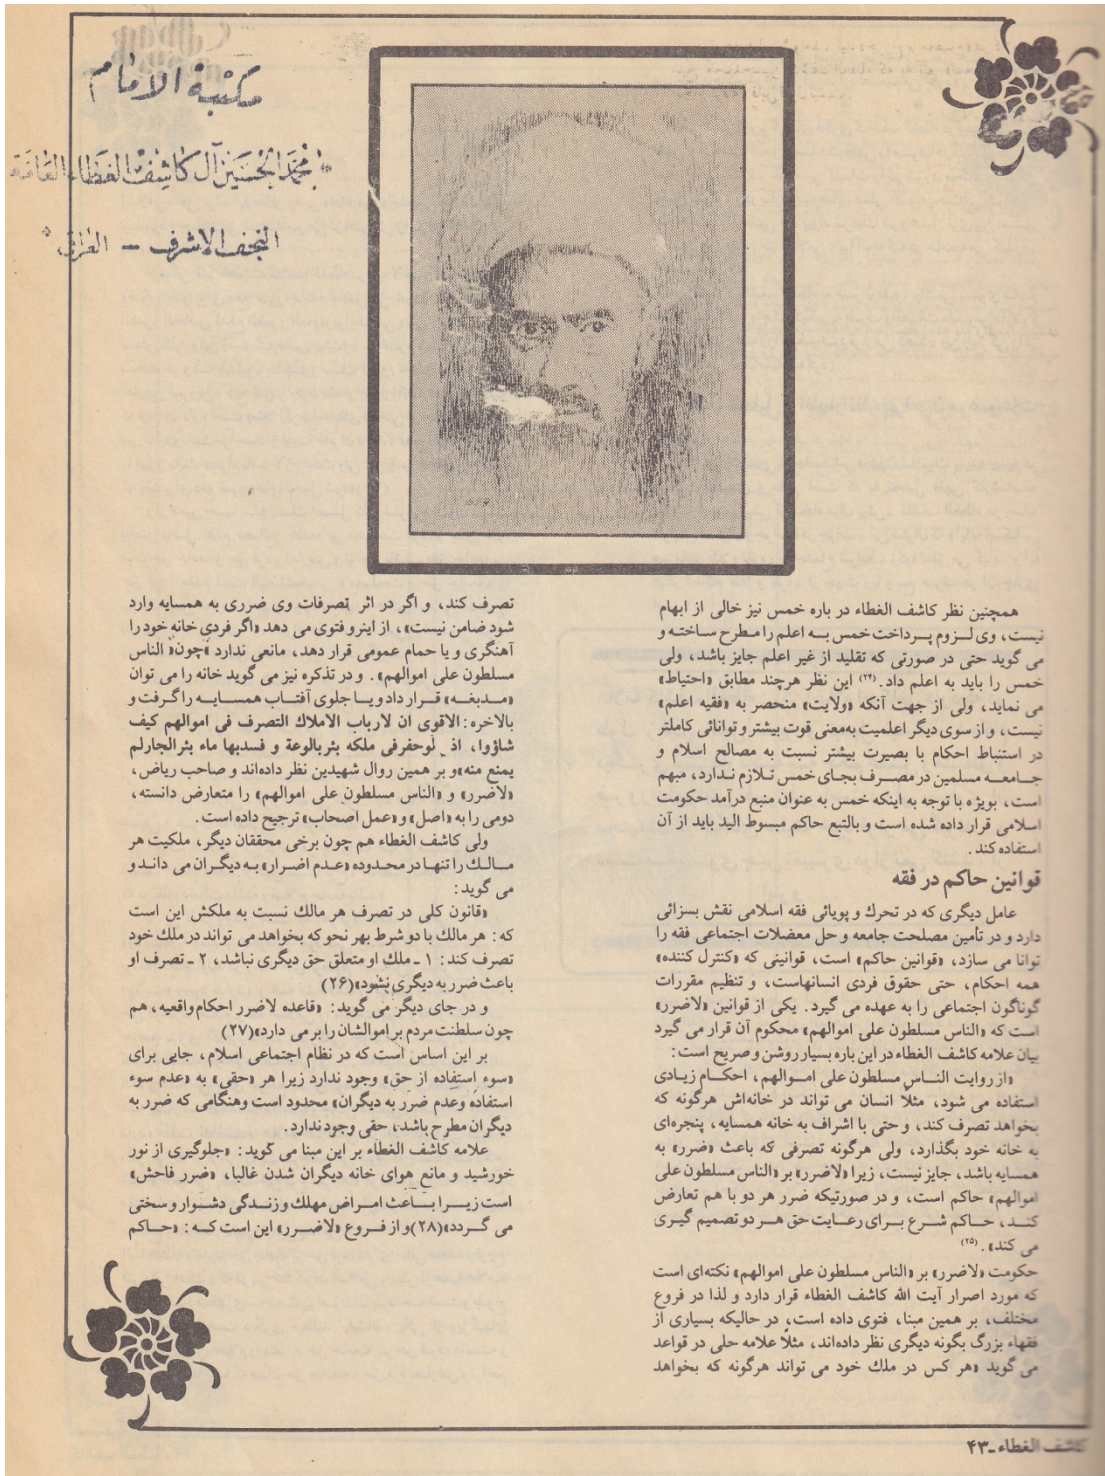 مكتبة الامام
محمد الحسين آل كاشف الغطاء العامة
النجف الاشرف - العراق
همچنین نظر کاشف الغطاء در باره خمس نیز خالی از ابهام
نیست، وی لزوم پرداخت خمس به اعلم را مطرح ساخته و
می گوید حتی در صورتی که تقلید از غیر اعلم جایز باشد، ولی
خمس را باید به اعلم داد. (۲۴) این نظر هرچند مطابق «احتیاط»
می نماید، ولی از جهت آنکه «ولایت» منحصر به «فقیه اعلم»
نیست، و از سوی دیگر اعلمیت به‌معنی قوت بیشتر و توانائی کاملتر
در استنباط احکام با بصیرت بیشتر نسبت به مصالح اسلام و
جامعه مسلمین در مصرف بجای خمس تلازم ندارد، مبهم
است، بویژه با توجه به اینکه خمس به عنوان منبع درآمد حکومت
اسلامی قرار داده شده است و بالتبع حاکم مبسوط الید باید از آن
استفاده کند.
قوانین حاکم در فقه
عامل دیگری که در تحرك و پویائی فقه اسلامی نقش بسزائی
دارد و در تأمین مصلحت جامعه و حل معضلات اجتماعی فقه را
توانا می سازد، «قوانین حاکم» است، قوانینی که «کنترل کننده»
همه احکام، حتی حقوق فردی انسانهاست، و تنظیم مقررات
گوناگون اجتماعی را به عهده می گیرد. یکی از قوانین «لاضرر»
است که «الناس مسلطون علی اموالهم» محکوم آن قرار می گیرد
بیان علامه کاشف الغطاء در این باره بسیار روشن و صریح است:
«از روایت الناس مسلطون علی اموالهم، احکام زیادی
استفاده می شود، مثلاً انسان می تواند در خانه‌اش هرگونه که
بخواهد تصرف کند، و حتی با اشراف به خانه همسایه، پنجره‌ای
به خانه خود بگذارد، ولی هرگونه تصرفی که باعث «ضرر» به
همسایه باشد، جایز نیست، زیرا «لاضرر» بر «الناس مسلطون علی
اموالهم» حاکم است، و در صورتیکه ضرر هر دو با هم تعارض
کند، حاکم شرع برای رعایت حق هر دو تصمیم گیری
می کند». (۲۵)
حکومت «لاضرر» بر «الناس مسلطون علی اموالهم» نکته‌ای است
که مورد اصرار آیت الله کاشف الغطاء قرار دارد و لذا در فروع
مختلف، بر همین مبنا، فتوی داده است، در حالیکه بسیاری از
فقهاء بزرگ بگونه دیگری نظر داده‌اند، مثلاً علامه حلی در قواعد
می گوید «هر کس در ملك خود می تواند هرگونه که بخواهد
تصرف کند، و اگر در اثر تصرفات وی ضرری به همسایه وارد
شود ضامن نیست»، از اینرو فتوی می دهد «اگر فردی خانه خود را
آهنگری و یا حمام عمومی قرار دهد، مانعی ندارد «چون» الناس
مسلطون علی اموالهم». و در تذکره نیز می گوید خانه را می توان
«مدبغه» قرار داد و یا جلوی آفتاب همسایه را گرفت و
بالاخره: الاقوی ان لارباب الاملاك التصرف فی اموالهم کیف
شاؤوا، اذ لوحفرفی ملکه بئربالوعة و فسدبها ماء بئرالجارلم
یمنع منه» و بر همین روال شهیدین نظر داده‌اند و صاحب ریاض،
«لاضرر» و «الناس مسلطون علی اموالهم» را متعارض دانسته،
دومی را به «اصل» و «عمل اصحاب» ترجیح داده است.
ولی کاشف الغطاء هم چون برخی محققان دیگر، ملکیت هر
مالك را تنها در محدوده «عدم اضرار» به دیگران می داند و
می گوید:
«قانون کلی در تصرف هر مالك نسبت به ملکش این است
که: هر مالك با دو شرط بهر نحو که بخواهد می تواند در ملك خود
تصرف کند: ۱ـ ملك او متعلق حق دیگری نباشد، ۲ـ تصرف او
باعث ضرر به دیگری نشود»(۲۶)
و در جای دیگر می گوید: «قاعده لاضرر احکام واقعیه، هم
چون سلطنت مردم بر اموالشان را بر می دارد»(۲۷)
بر این اساس است که در نظام اجتماعی اسلام، جایی برای
«سوء استفاده از حق» وجود ندارد زیرا هر «حقی» به «عدم سوء
استفاده وعدم ضرر به دیگران» محدود است وهنگامی که ضرر به
دیگران مطرح باشد، حقی وجود ندارد.
علامه کاشف الغطاء بر این مبنا می گوید: «جلوگیری از نور
خورشید و مانع هوای خانه دیگران شدن غالبا، «ضرر فاحش»
است زیرا باعث امراض مهلك و زندگی دشوار و سختی
می گردد»(۲۸) و از فروع «لاضرر» این است که: «حاکم
کاشف الغطاء ـ ۴۳